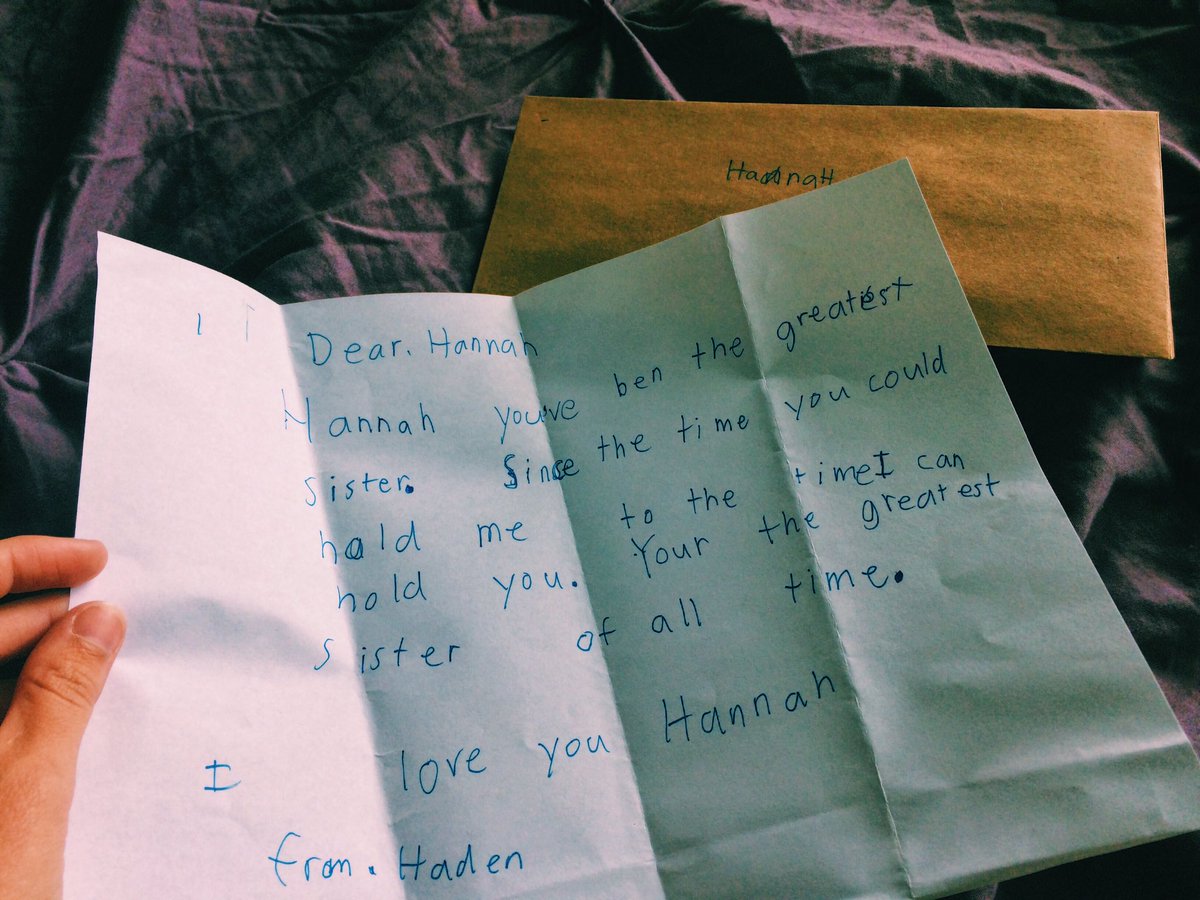 HannaH
Dear. Hannah
Hannah you've ben the greatest
sister. Since the time you could
hold me to the time I can
hold you. Your the greatest
sister of all time.
I love you Hannah
from. Haden